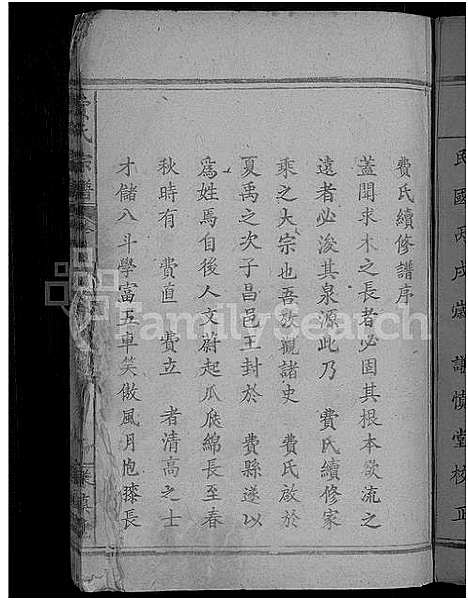 民國丙戌歲謙慎堂校正
費氏續修譜序
蓋聞求木之長者必固其根本欲流之
遠者必浚其泉源此乃 費氏續修家
乘之大宗也吾攷觀諸史 費氏啟於
夏禹之次子昌邑王封於 費縣遂以
為姓焉自後人文蔚起瓜瓞綿長至春
秋時有 費直 費立 者清高之士
才儲八斗學富五車笑傲風月抱膝長
費氏宗譜
FamilySearch